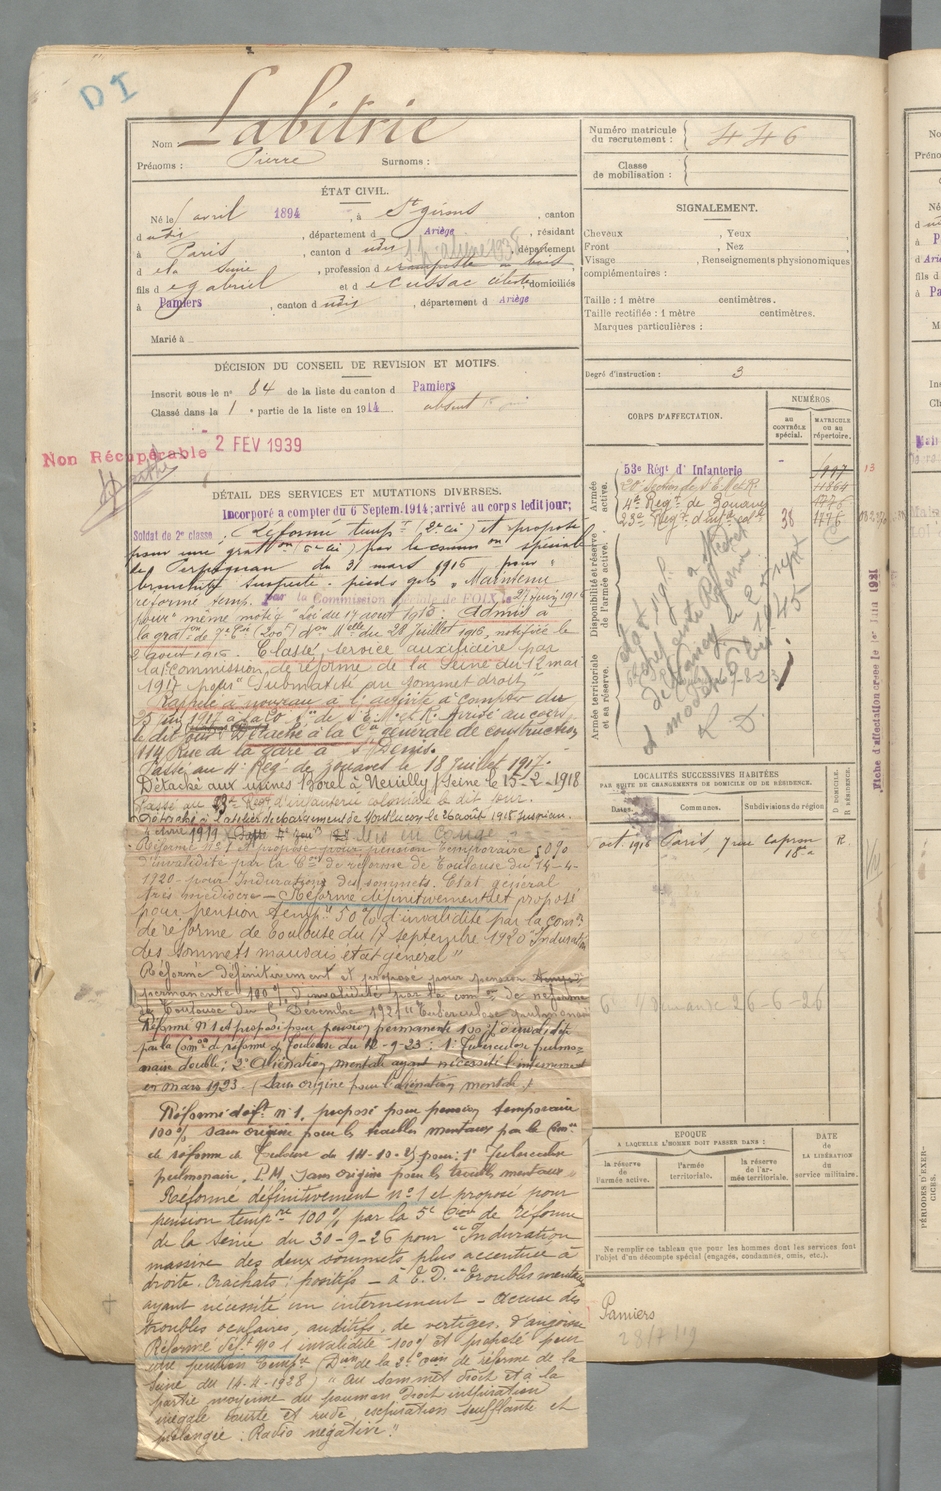 DI
Nom Labitrie
Prénoms : Pierre Surnoms :
ÉTAT CIVIL.
Né le 1 avril 1894, à St girons, canton
d udit, département d Ariège, résidant
à Paris, canton d udit, département
d e la Seine, profession d
fils d e gabriel et d e cussac céleste, domiciliés
à Pamiers, canton d udit, département d Ariège
Marié à
DÉCISION DU CONSEIL DE REVISION ET MOTIFS.
Inscrit sous le n° 84 de la liste du canton d Pamiers
Classé dans la 1e partie de la liste en 1914 absent
Non Récupérable 2 FEV 1939
DÉTAIL DES SERVICES ET MUTATIONS DIVERSES.
Incorporé a compter du 6 Septem. 1914; arrivé au corps ledit jour;
Soldat de 2e classe. Réformé temp.re (2e Cie) et proposé
pour une grat.on (5e Cie) par la comm.on spéciale
de Perpignan du 31 mars 1916 pour
bronchite suspecte. pieds gelés. Maintenu
réformé temp. par la Commission de FOIX le 27 juin 1916
pour même motif. Loi du 17 aout 1915. Admis à
la grat.on de 7e Cie (200f) d.on M.elle du 28 Juillet 1916, notifiée le
2 aout 1916. Classé, service auxiliaire par
la 1e Commission de réforme de la Seine du 12 mai
1917 pour "Submatité au sommet droit"
Rappelé à nouveau à l'activité à compter du
25 juin 1917 à la 20e S.on de S.E.M. et R. Arrivé au corps
le dit jour. Détaché à la Cie générale de construction
114 Rue de la gare à St Denis.
Passé au 4e Regt de zouaves le 18 Juillet 1917.
Détaché aux usines Borel à Neuilly/Seine le 15-2-1918
Passé au 23e Regt d'infanterie coloniale le dit jour.
Détaché à l'atelier de chargement de Montlucon le 26 aout 1918 Jusqu'au
4 avril 1919 Mis en Congé
Réformé N° 1 et proposé pour pension temporaire 50%
d'invalidité par la C.on de réforme de Toulouse du 14-4-
1920 pour Indurations des sommets. Etat général
très médiocre — Réformé définitivement et proposé
pour pension temp.re 50% d'invalidité par la Com.on
de réforme de Toulouse du 17 septembre 1920 "Induration
des sommets mauvais état général"
Réformé définitivement et proposé pour pension
permanente 100% d'invalidité par la com.on de réforme
de Toulouse du 5 Décembre 1921 "Tuberculose pulmonaire
Réformé N° 1 et proposé pour pension permanente 100% d'invalidité
par la Com.on de réforme de Toulouse du 10-9-23 : 1° Tuberculose pulmo-
naire double; 2° Aliénation mentale ayant nécessité l'internement
en mars 1923. (Sans origine pour l'aliénation mentale)
Réformé déf.t n° 1, proposé pour pension temporaire
100% sans origine pour les troubles mentaux par la Com.on
de réforme de Toulouse du 14-10-25 pour : 1° Tuberculose
pulmonaire. P.M. sans origine pour les troubles mentaux"
Réformé définitivement n° 1 et proposé pour
pension temp.re 100% par la 5e C.on de réforme
de la Seine du 30-9-26 pour "Induration
massive des deux sommets plus accentuée à
droite. Crachats : positifs — à E.D. "Troubles mentaux
ayant nécessité un internement — Accuse des
troubles oculaires, auditifs, de vertiges, d'angoisse
Réformé déf. N° 1 invalidité 100% et proposé pour
une pension temp.re (D.on de la 3e C.on de réforme de la
Seine du 14-4-1928) "Au sommet droit et à la
partie moyenne du poumon droit inspiration
inégale courte et rude, expiration soufflante et
prolongée : Radio négative."
Numéro matricule
du recrutement : 446
Classe
de mobilisation :
SIGNALEMENT.
Cheveux , Yeux ,
Front , Nez
Visage , Renseignements physionomiques
complémentaires :
Taille : 1 mètre centimètres.
Taille rectifiée : 1 mètre centimètres.
Marques particulières :
Degré d'instruction : 3
CORPS D'AFFECTATION.
NUMÉROS
au
CONTRÔLE
spécial.
MATRICULE
ou au
répertoire.
Armée
active.
53e Régt d'Infanterie
20e Section de S.E.M. et R. 11864
4e Regt de Zouaves 1776
23e Regt d'inf.ie col.le 38 1776
Disponibilité et réserve
de l'armée active.
Armée territoriale
et sa réserve.
Fiche d'affectation créée le 1er Juin 1921
LOCALITÉS SUCCESSIVES HABITÉES
PAR SUITE DE CHANGEMENTS DE DOMICILE OU DE RÉSIDENCE.
Dates. Communes. Subdivisions de région
D. DOMICILE.
R. RÉSIDENCE.
oct 1916 Paris, 7 rue Capron R.
18e
demande 26-6-26
EPOQUE
A LAQUELLE L'HOMME DOIT PASSER DANS :
la réserve
de l'armée active.
l'armée
territoriale.
la réserve
de l'ar-
mée territoriale.
DATE
de
LA LIBÉRATION
du
service militaire.
Ne remplir ce tableau que pour les hommes dont les services font
l'objet d'un décompte spécial (engagés, condamnés, omis, etc.).
Pamiers
28/7/19
PÉRIODES D'EXER-
CICES.